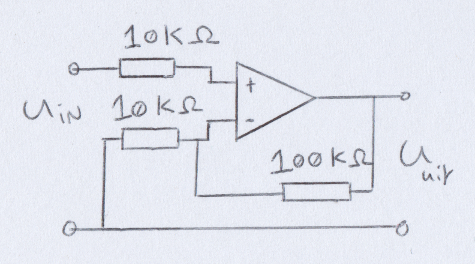 10KΩ
+
U in 10KΩ
-
100KΩ
U uit